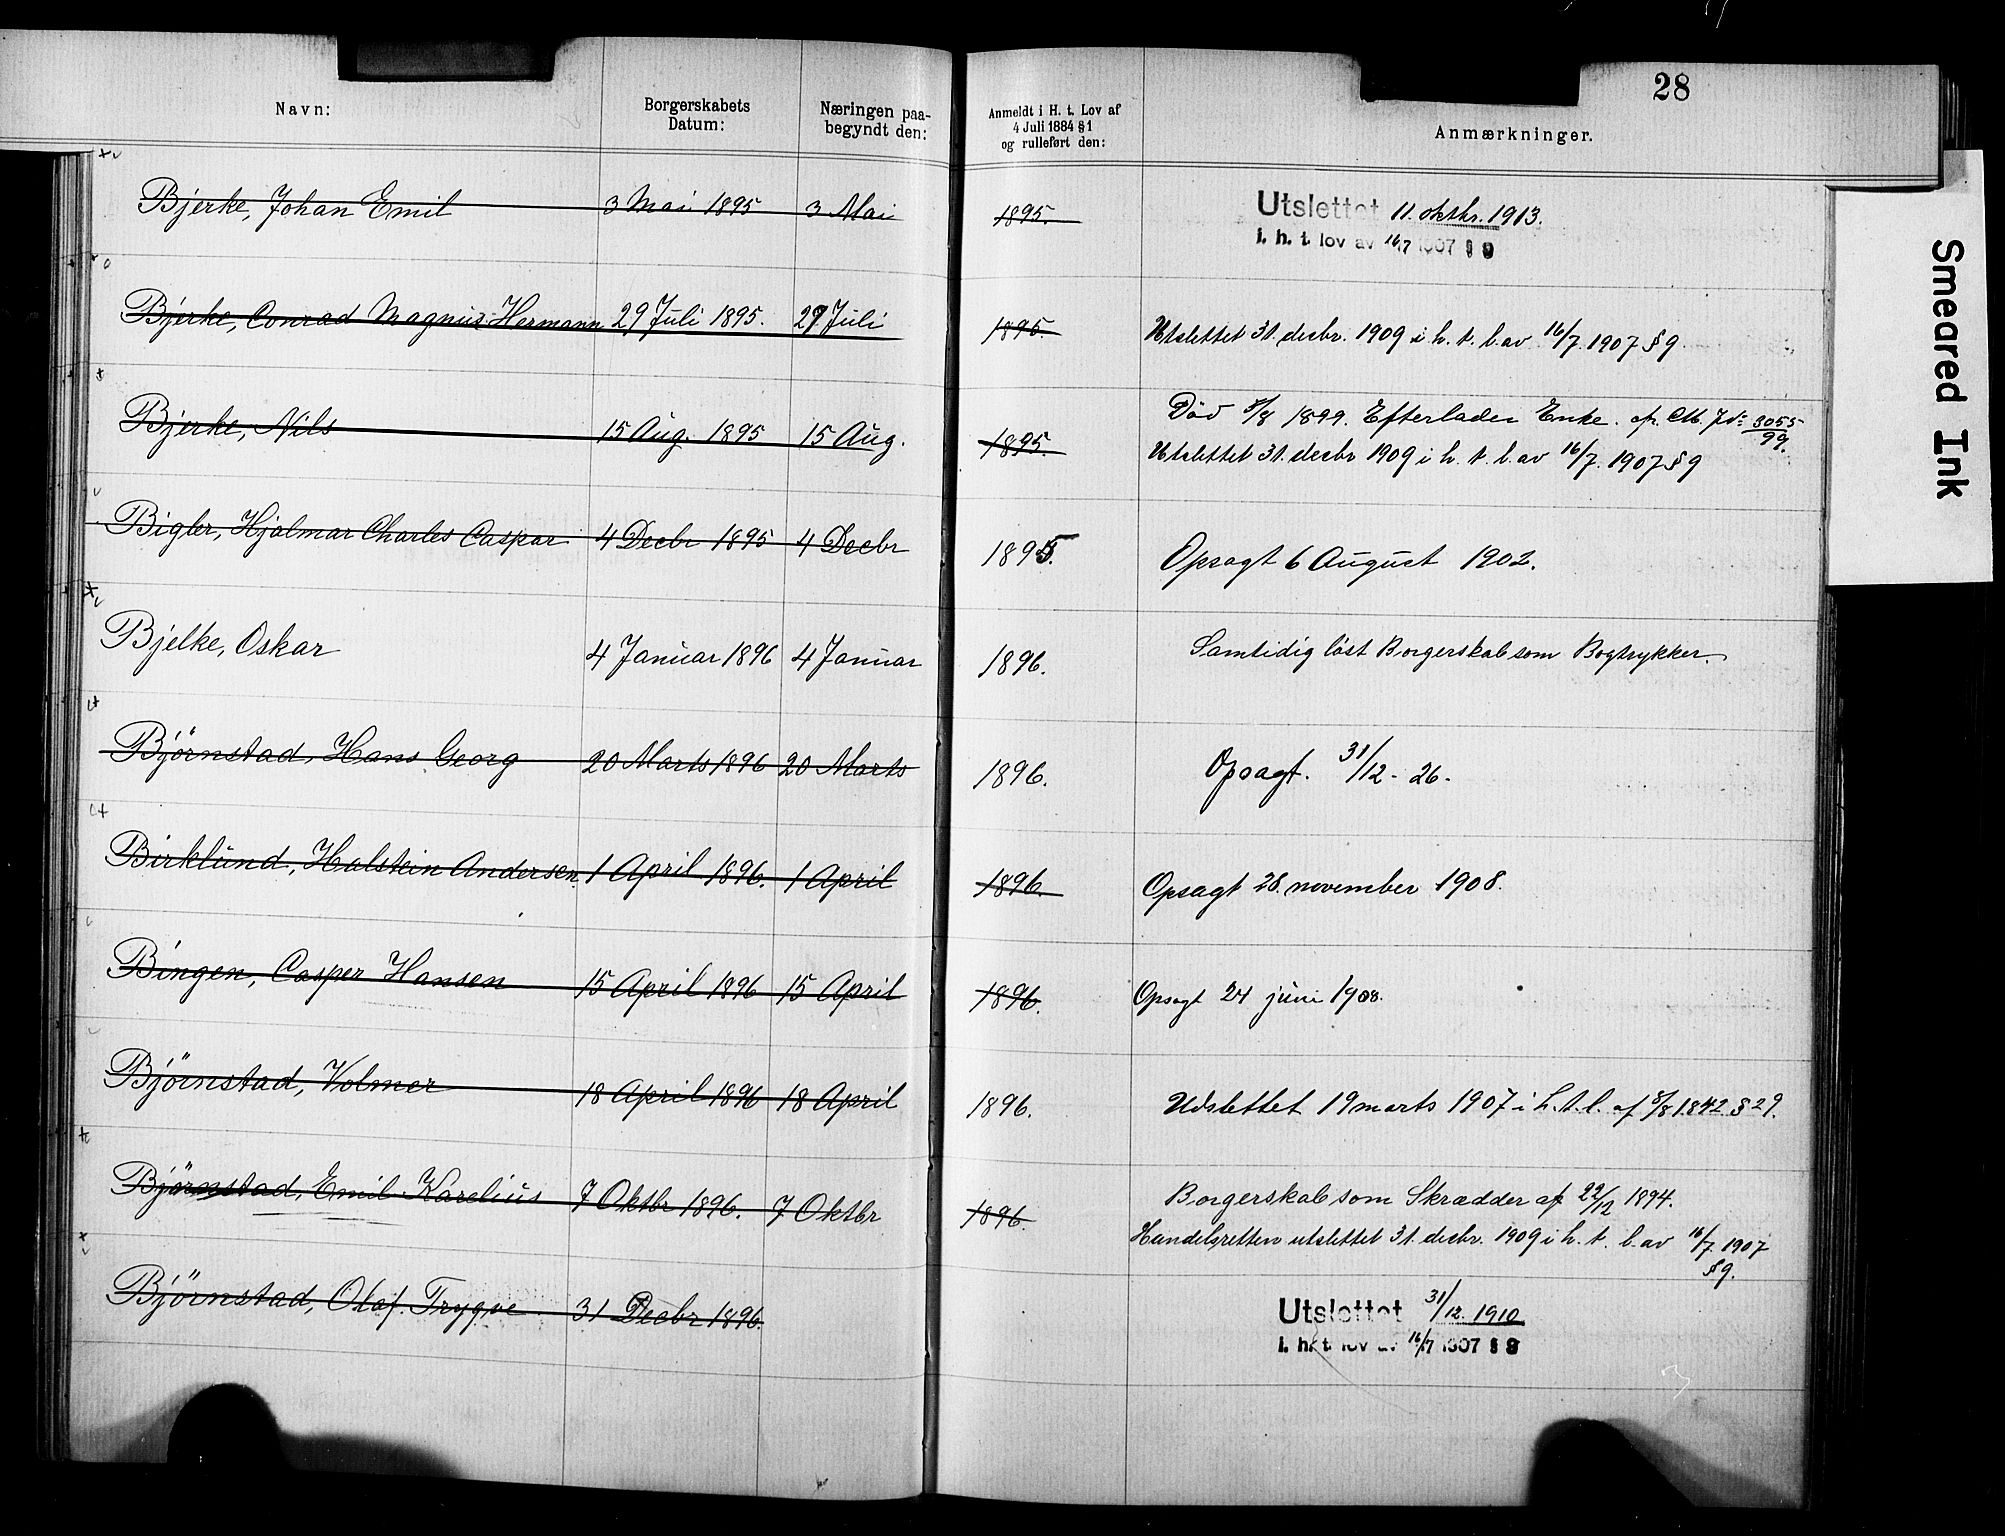 28
Navn: Borgerskabets Datum: Næringen paabegyndt den: Anmeldt i H. t. Lov af 4 Juli 1884 § 1 og rulleført den: Anmærkninger.
Bjerke, Johan Emil 3 Mai 1895 3 Mai 1895. Utslettet 11. oktbr. 1913.
i. h. t. lov av 16/7 1907 § 9
Bjerke, Conrad Magnus Hermann 29 Juli 1895. 29 Juli 1895. Utslettet 31. decbr. 1909 i h. t. l. av 16/7 1907 § 9.
Bjerke, Nils 15 Aug. 1895 15 Aug. 1895. Død 8/8 1899. Efterlader Enke. 3055/99.
Utslettet 31. decbr 1909 i h. t. l. av 16/7 1907 § 9
Bigler, Hjalmar Charles Caspar 4 Decbr 1895 4 Decbr 1895. Opsagt 6 August 1902.
Bjelke, Oskar 4 Januar 1896 4 Januar 1896. Samtidig löst Borgerskab som Bogtrykker.
Björnstad, Hans Georg 20 Marts 1896 20 Marts 1896. Opsagt. 31/12 - 26.
Birklund, Halstein Andersen 1 April 1896. 1 April 1896. Opsagt 28. november 1908.
Bingen, Casper Hansen 15 April 1896 15 April 1896. Opsagt 24 juni 1908.
Björnstad, Volmer 18 April 1896 18 April 1896. Udslettet 19 marts 1907 i h. t. l. af 8/8 1842 § 29.
Björnstad, Emil Karelius 7 Oktbr 1896. 7 Oktbr 1896. Borgerskab som Skrædder af 22/12 1894.
Handelsretten utslettet 31. decbr. 1909 i h. t. l. av 16/7 1907
§ 9.
Björnstad, Olaf Trygve 31 Decbr 1896. Utslettet 31/12. 1910
i. h. t. lov av 16/7 1907 § 9
Smeared Ink